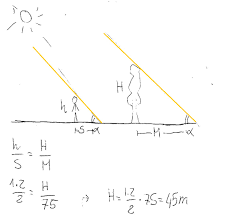 h H
S α M α
h/S = H/M
1.2/2 = H/75 ⇒ H = 1.2/2 · 75 = 45m